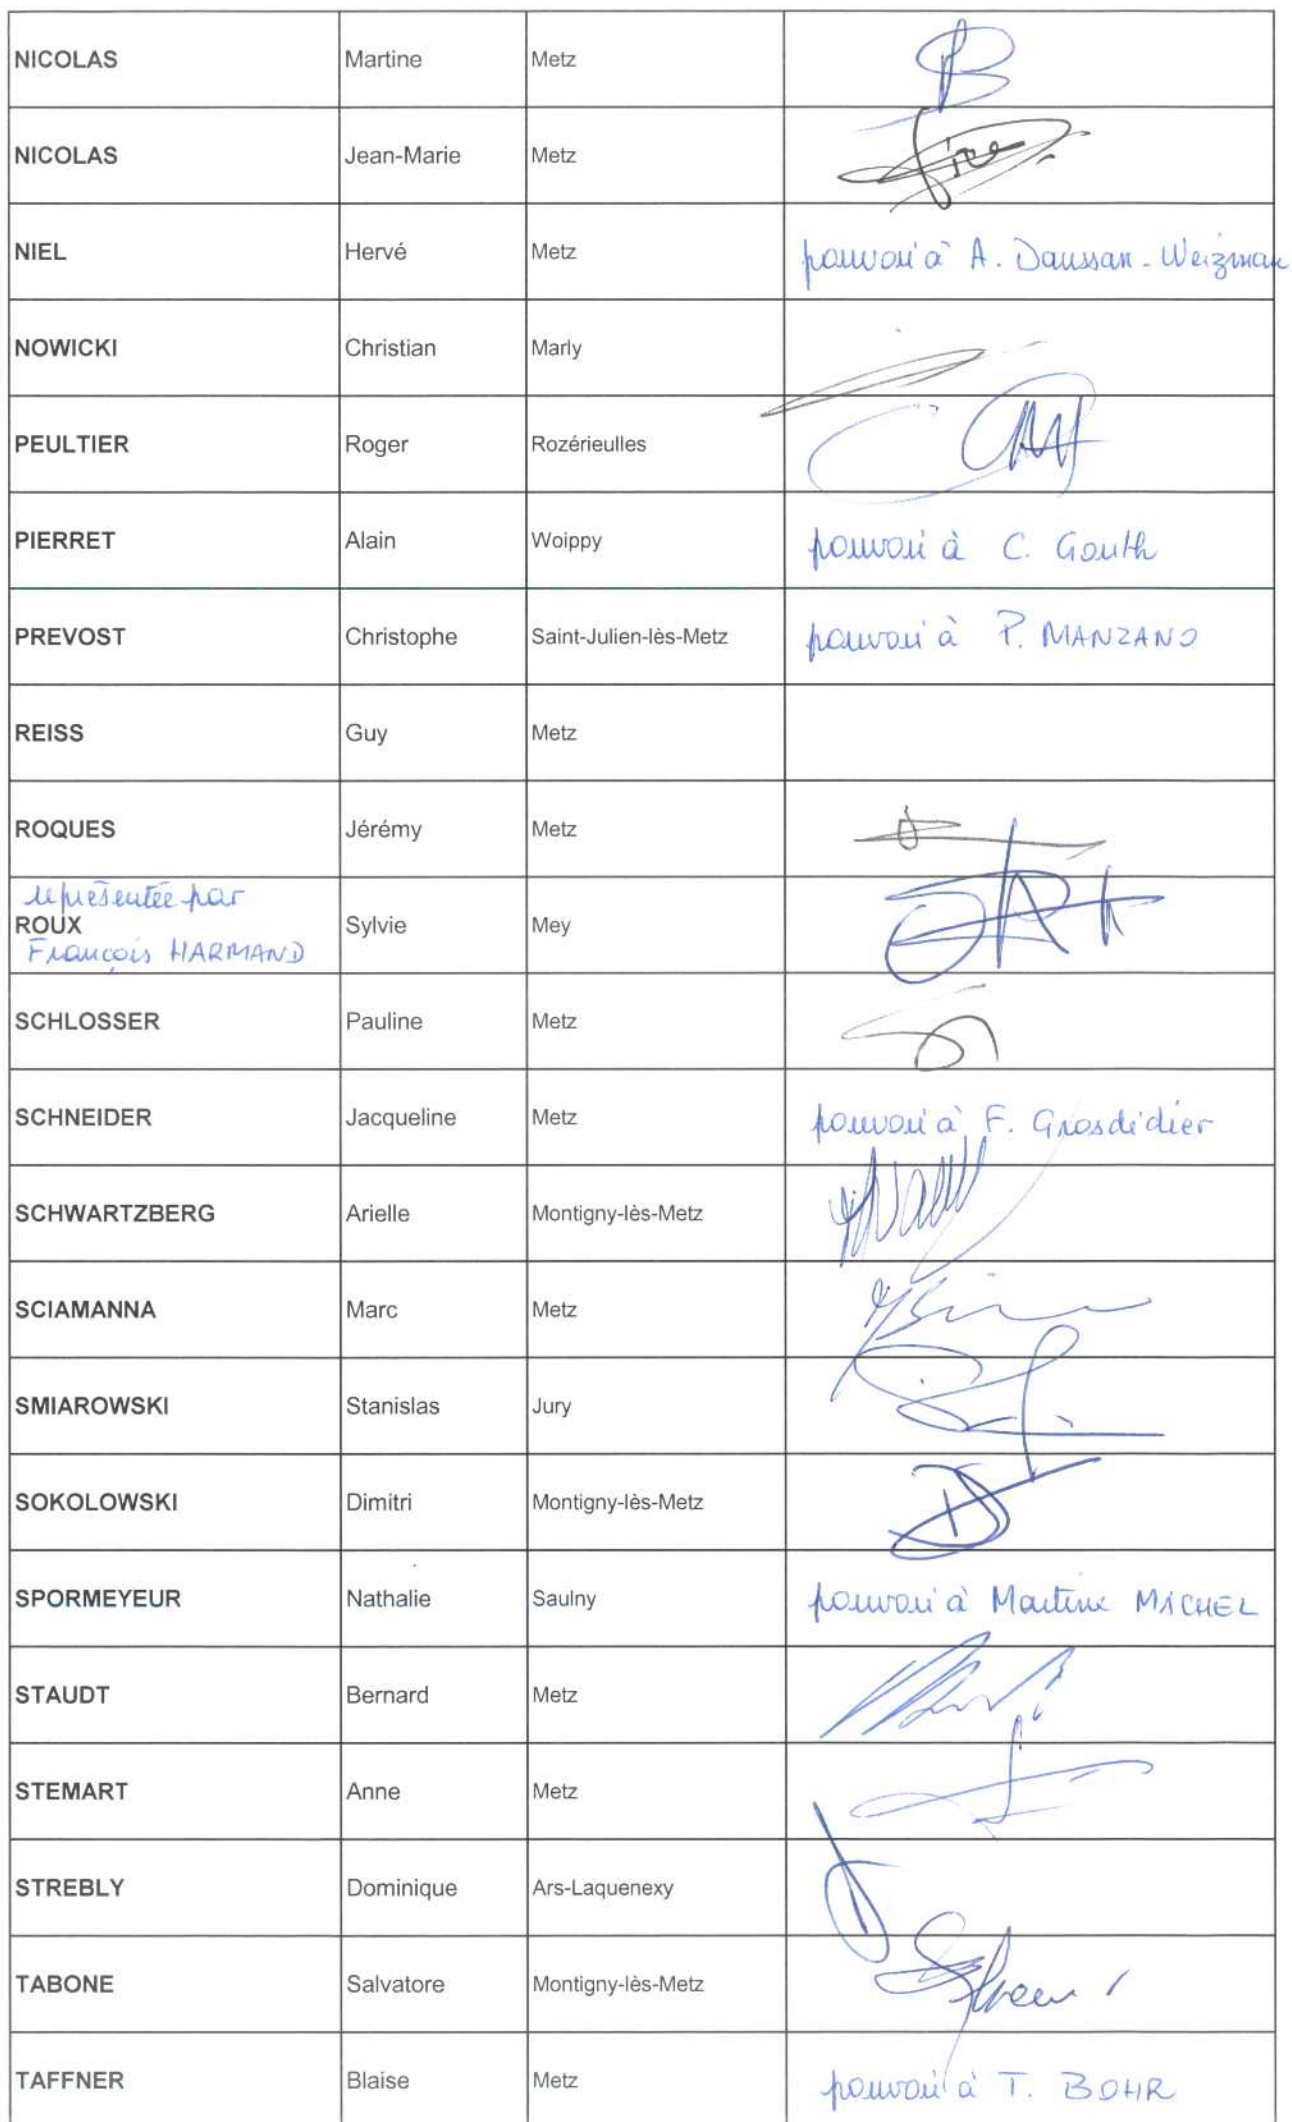 NICOLAS Martine Metz
NICOLAS Jean-Marie Metz
NIEL Hervé Metz pouvoir à A. Daussan-Weizman
NOWICKI Christian Marly
PEULTIER Roger Rozérieulles
PIERRET Alain Woippy pouvoir à C. Gouth
PREVOST Christophe Saint-Julien-lès-Metz pouvoir à P. MANZANO
REISS Guy Metz
ROQUES Jérémy Metz
représentée par
ROUX Sylvie Mey
François HARMAND
SCHLOSSER Pauline Metz
SCHNEIDER Jacqueline Metz pouvoir à F. Grosdidier
SCHWARTZBERG Arielle Montigny-lès-Metz
SCIAMANNA Marc Metz
SMIAROWSKI Stanislas Jury
SOKOLOWSKI Dimitri Montigny-lès-Metz
SPORMEYEUR Nathalie Saulny pouvoir à Martine MICHEL
STAUDT Bernard Metz
STEMART Anne Metz
STREBLY Dominique Ars-Laquenexy
TABONE Salvatore Montigny-lès-Metz
TAFFNER Blaise Metz pouvoir à T. BOHR